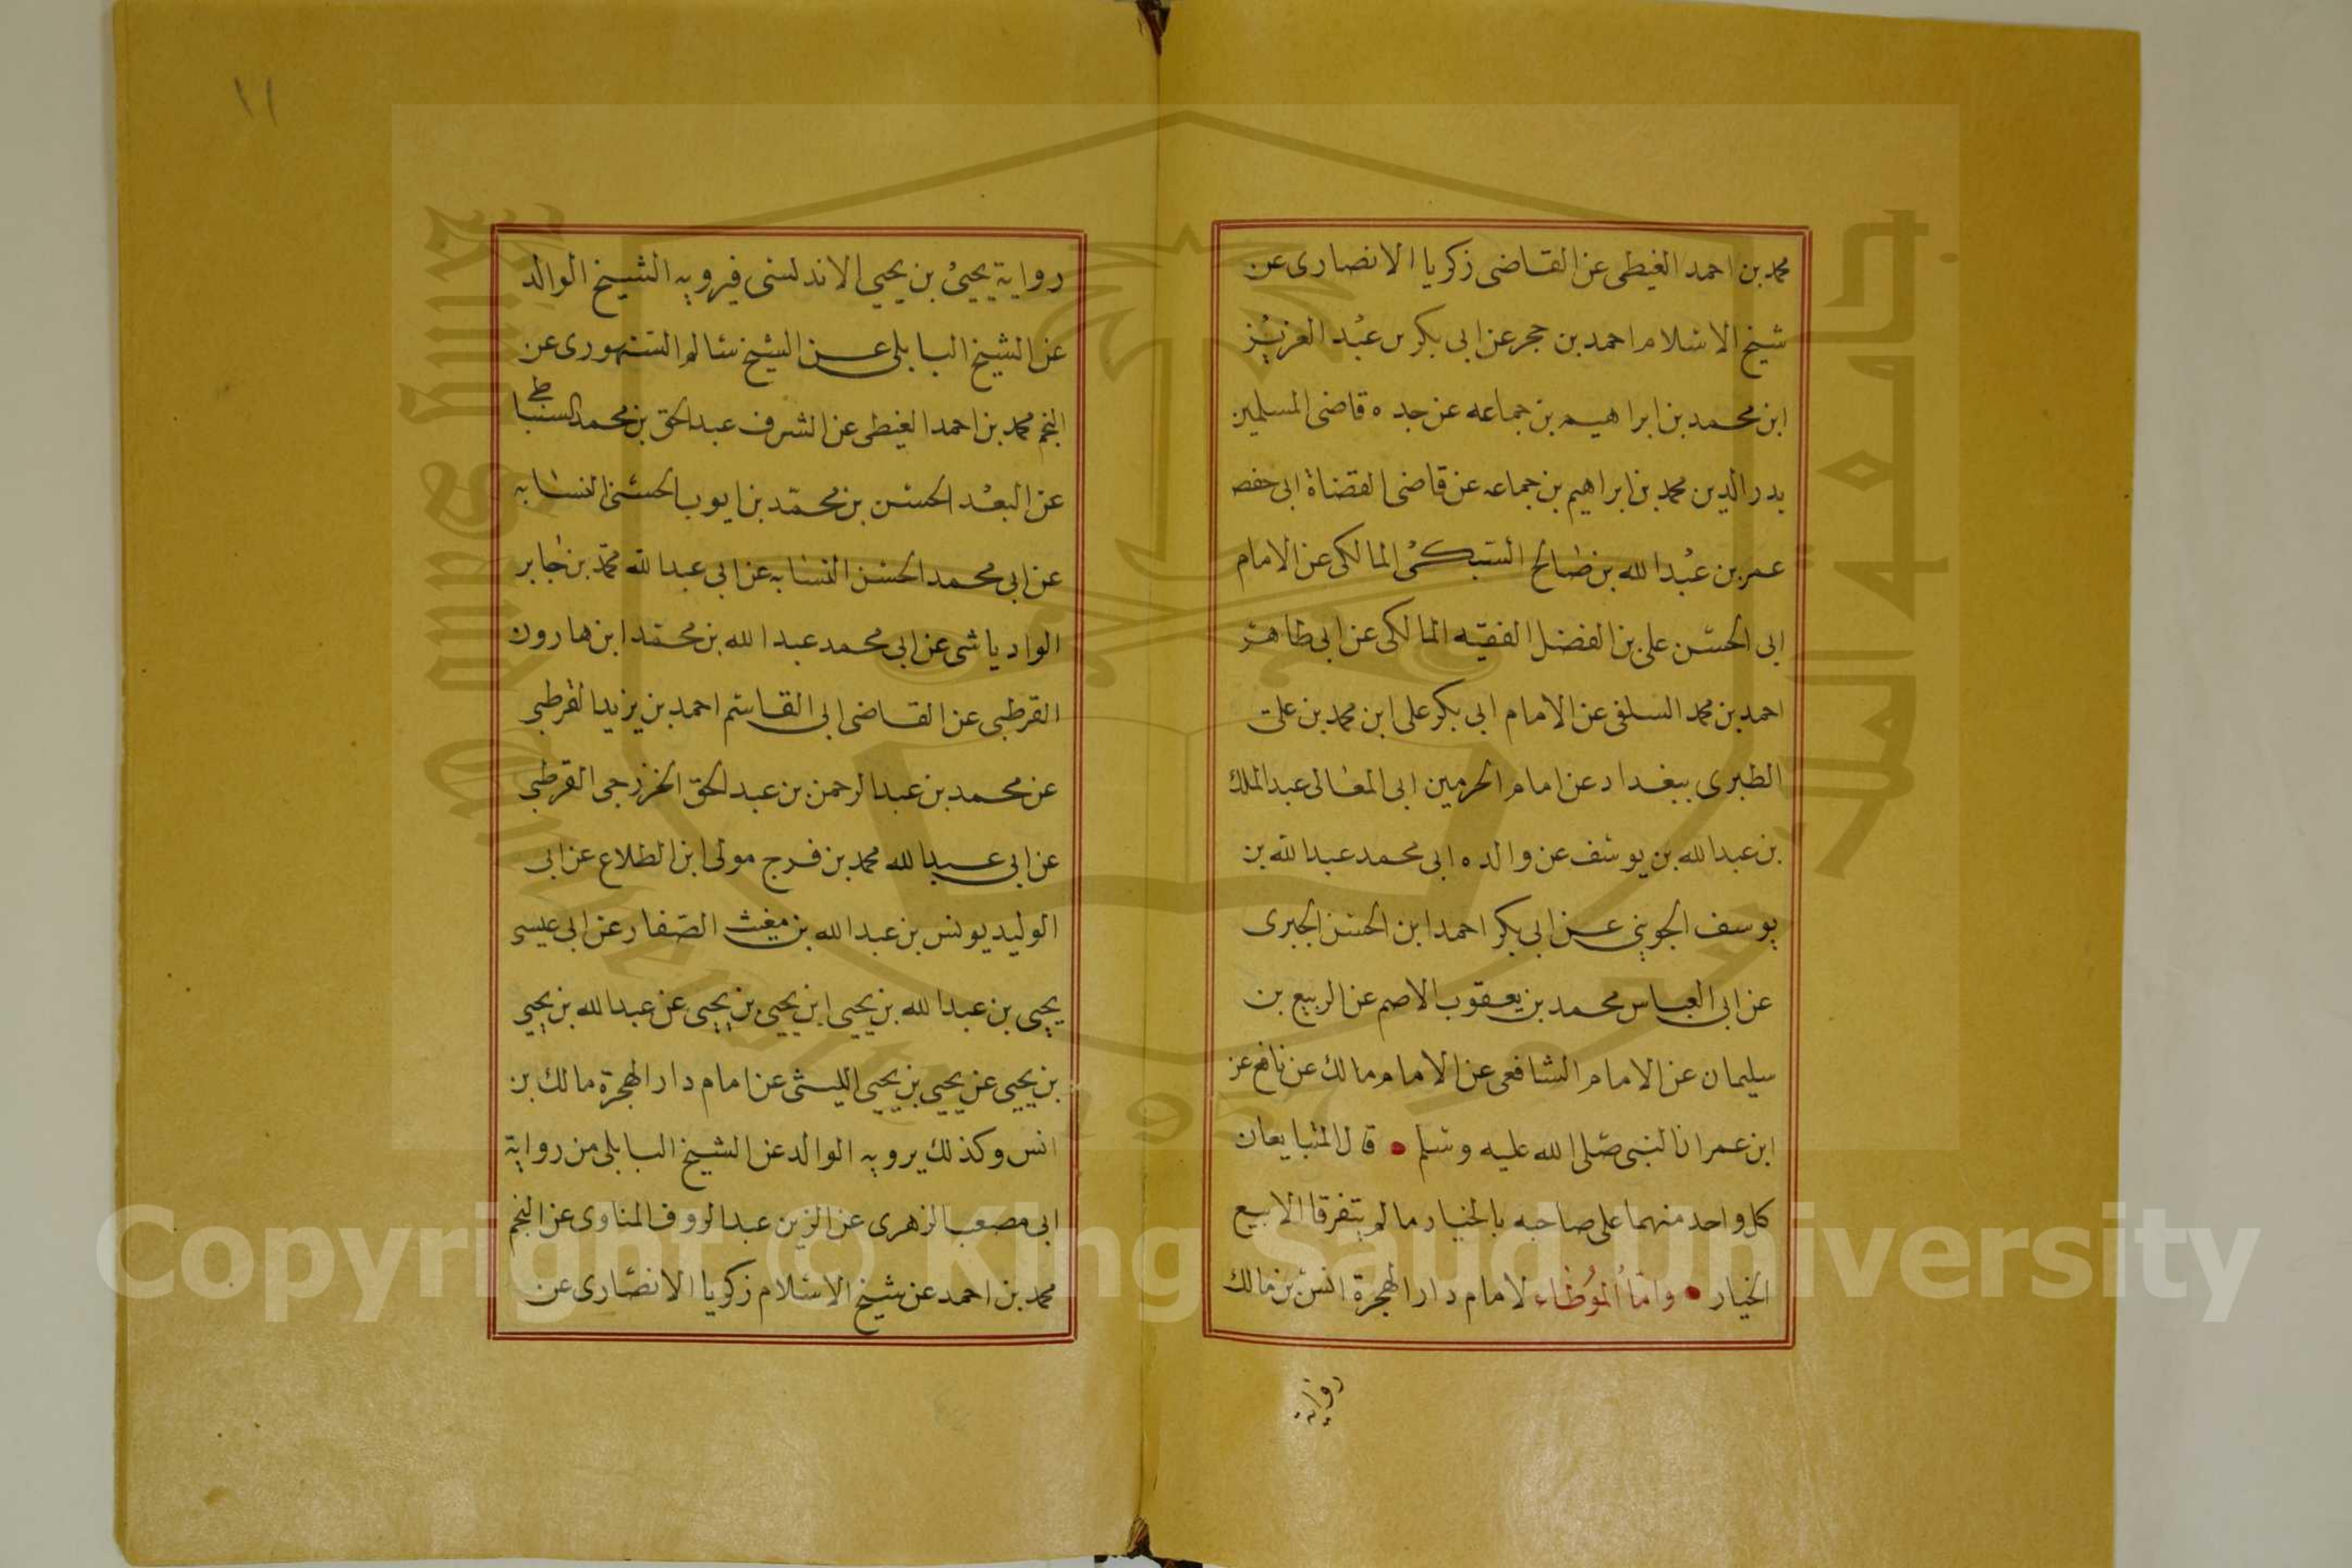 محمد بن احمد الغيطى عن القاضى زكريا الانصارى عن
شيخ الاسلام احمد بن حجر عن ابى بكر بن عبد العزيز
ابن محمد بن ابراهيم بن جماعه عن جده قاضى المسلمين
بدر الدين محمد بن ابراهيم بن جماعه عن قاضى القضاة ابى حفص
عمر بن عبد الله بن صالح السبكى المالكى عن الامام
ابى الحسن على بن الفضل الفقيه المالكى عن ابى طاهر
احمد بن محمد السلفى عن الامام ابى بكر على ابن محمد بن على
الطبرى ببغداد عن امام الحرمين ابى المعالى عبد الملك
بن عبد الله بن يوسف عن والده ابى محمد عبد الله بن
يوسف الجوينى عن ابى بكر احمد ابن الحسن الجبرى
عن ابى العباس محمد بن يعقوب الاصم عن الربيع بن
سليمان عن الامام الشافعى عن الامام مالك عن نافع عن
ابن عمر ان النبى صلى الله عليه وسلم • قال المتبايعان
كل واحد منهما على صاحبه بالخيار ما لم يتفرقا الا بيع
الخيار • واما الموطاء لامام دار الهجرة انس بن مالك
رواية
١١
رواية يحيى بن يحيى الاندلسى فيرويه الشيخ الوالد
عن الشيخ البابلى عن الشيخ سالم السنهورى عن
النجم محمد بن احمد الغيطى عن الشرف عبد الحق بن محمد السنباطى
عن البعد الحسن بن محمد بن ايوب الحسنى النسابه
عن ابى محمد الحسن النسابه عن ابى عبد الله محمد بن جابر
الوادياشى عن ابى محمد عبد الله بن محمد ابن هارون
القرطبى عن القاضى ابى القاسم احمد بن يزيد القرطبى
عن محمد بن عبد الرحمن بن عبد الحق الخزرجى القرطبى
عن ابى عبد الله محمد بن فرج مولى ابن الطلاع عن ابى
الوليد يونس بن عبد الله بن مغيث الصفار عن ابى عيسى
يحيى بن عبد الله بن يحيى ابن يحيى بن يحيى عن عبد الله بن يحيى
بن يحيى عن يحيى بن يحيى الليثى عن امام دار الهجرة مالك بن
انس وكذلك يرويه الوالد عن الشيخ البابلى من رواية
ابى مصعب الزهرى عن الزين عبد الروف المناوى عن النجم
محمد بن احمد عن شيخ الاسلام زكريا الانصارى عن
Copyright © King Saud University
King Saud University
جامعة الملك سعود
1957